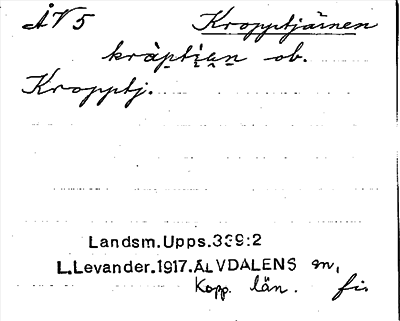 ÅV5 Kropptjärnen
kràptjạṇ ob.
Kropptj.
Landsm.Upps.339:2
L.Levander.1917.ÄLVDALENS sn,
Kopp. län. fi.